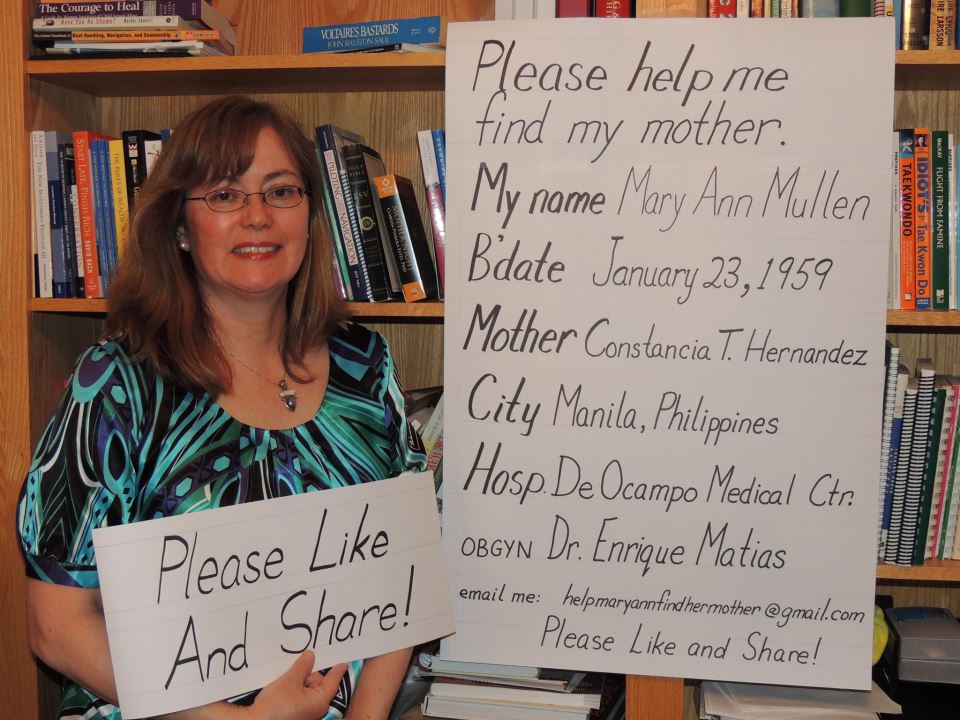 Please help me
find my mother.
My name Mary Ann Mullen
B'date January 23, 1959
Mother Constancia T. Hernandez
City Manila, Philippines
Hosp. De Ocampo Medical Ctr.
OBGYN Dr. Enrique Matias
email me: helpmaryannfindhermother@gmail.com
Please Like and Share!
Please Like
And Share!
The Courage to Heal
VOLTAIRE'S BASTARDS
JOHN RALSTON SAUL
START LATE, FINISH RICH DAVID BACH
THE RULES OF WEALTH
PILOTING NAVIGATION
HOLY BIBLE
TAEKWONDO
IDIOT'S Tae Kwon Do
FLIGHT FROM FAMINE
LARSSON